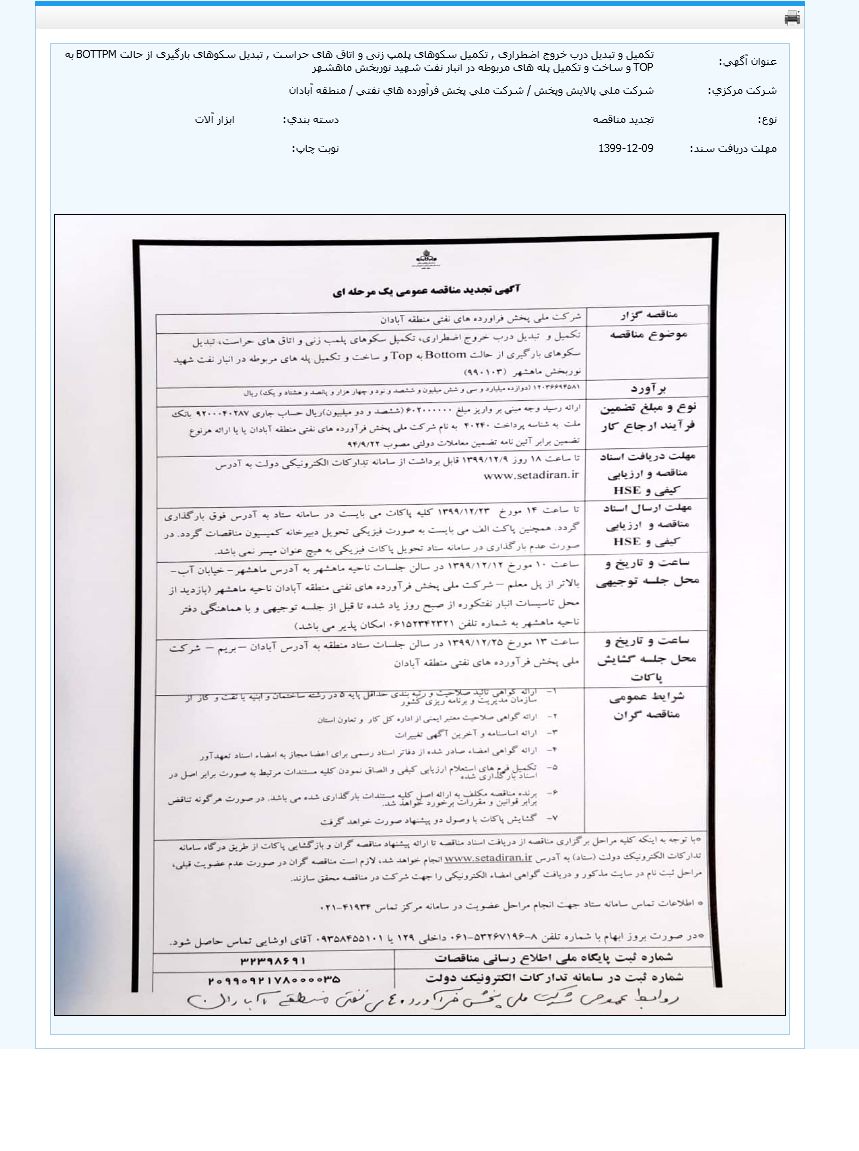 عنوان آگهي: تکمیل و تبدیل درب خروج اضطراری , تکمیل سکوهای پلمپ زنی و اتاق های حراست , تبدیل سکوهای بارگیری از حالت BOTTPM به
TOP و ساخت و تکمیل پله های مربوطه در انبار نفت شهید نوربخش ماهشهر
شرکت مرکزي: شرکت ملي پالایش وپخش / شرکت ملي پخش فرآورده هاي نفتي / منطقه آبادان
نوع: تجدید مناقصه دسته بندي: ابزار آلات
مهلت دریافت سند: 1399-12-09 نوبت چاپ:
آگهی تجدید مناقصه عمومی یک مرحله ای
مناقصه گزار شرکت ملی پخش فراورده های نفتی منطقه آبادان
موضوع مناقصه تکمیل و تبدیل درب خروج اضطراری، تکمیل سکوهای پلمب زنی و اتاق های حراست، تبدیل
سکوهای بارگیری از حالت Bottom به Top و ساخت و تکمیل پله های مربوطه در انبار نفت شهید
نوربخش ماهشهر (۹۹۰۱۰۳)
برآورد ۱۲۰۳۶۶۹۴۵۸۱ (دوازده میلیارد و سی و شش میلیون و ششصد و نود و چهار هزار و پانصد و هشتاد و یک) ریال
نوع و مبلغ تضمین ارائه رسید وجه مبنی بر واریز مبلغ ۶۰۲۰۰۰۰۰۰ (ششصد و دو میلیون)ریال حساب جاری ۹۲۰۰۰۴۰۲۸۷ بانک
فرآیند ارجاع کار ملت به شناسه پرداخت ۴۰۲۴۰ به نام شرکت ملی پخش فرآورده های نفتی منطقه آبادان یا یا ارائه هرنوع
تضمین برابر آئین نامه تضمین معاملات دولتی مصوب ۹۴/۹/۲۲
مهلت دریافت اسناد تا ساعت ۱۸ روز ۱۳۹۹/۱۲/۹ قابل برداشت از سامانه تدارکات الکترونیکی دولت به آدرس
مناقصه و ارزیابی www.setadiran.ir
کیفی و HSE
مهلت ارسال اسناد تا ساعت ۱۴ مورخ ۱۳۹۹/۱۲/۲۳ کلیه پاکات می بایست در سامانه ستاد به آدرس فوق بارگذاری
مناقصه و ارزیابی گردد. همچنین پاکت الف می بایست به صورت فیزیکی تحویل دبیرخانه کمیسیون مناقصات گردد. در
کیفی و HSE صورت عدم بارگذاری در سامانه ستاد تحویل پاکات فیزیکی به هیچ عنوان میسر نمی باشد.
ساعت و تاریخ و ساعت ۱۰ مورخ ۱۳۹۹/۱۲/۱۲ در سالن جلسات ناحیه ماهشهر به آدرس ماهشهر – خیابان آب –
محل جلسه توجیهی بالاتر از پل معلم – شرکت ملی پخش فرآورده های نفتی منطقه آبادان ناحیه ماهشهر (بازدید از
محل تاسیسات انبار نفتکوره از صبح روز یاد شده تا قبل از جلسه توجیهی و با هماهنگی دفتر
ناحیه ماهشهر به شماره تلفن ۰۶۱۵۲۳۴۲۳۲۱ امکان پذیر می باشد)
ساعت و تاریخ و ساعت ۱۳ مورخ ۱۳۹۹/۱۲/۲۵ در سالن جلسات ستاد منطقه به آدرس آبادان – بریم – شرکت
محل جلسه گشایش ملی پخش فرآورده های نفتی منطقه آبادان
پاکات
شرایط عمومی ۱- ارائه گواهی تائید صلاحیت و رتبه بندی حداقل پایه ۵ در رشته ساختمان و ابنیه یا نفت و گاز از
مناقصه گران سازمان مدیریت و برنامه ریزی کشور
۲- ارائه گواهی صلاحیت معتبر ایمنی از اداره کل کار و تعاون استان
۳- ارائه اساسنامه و آخرین آگهی تغییرات
۴- ارائه گواهی امضاء صادر شده از دفاتر اسناد رسمی برای اعضا مجاز به امضاء اسناد تعهدآور
۵- تکمیل فرم های استعلام ارزیابی کیفی و الصاق نمودن کلیه مستندات مرتبط به صورت برابر اصل در
اسناد بارگذاری شده
۶- برنده مناقصه مکلف به ارائه اصل کلیه مستندات بارگذاری شده می باشد. در صورت هرگونه تناقض
برابر قوانین و مقررات برخورد خواهد شد.
۷- گشایش پاکات با وصول دو پیشنهاد صورت خواهد گرفت
*با توجه به اینکه کلیه مراحل برگزاری مناقصه از دریافت اسناد مناقصه تا ارائه پیشنهاد مناقصه گران و بازگشایی پاکات از طریق درگاه سامانه
تدارکات الکترونیک دولت (ستاد) به آدرس www.setadiran.ir انجام خواهد شد، لازم است مناقصه گران در صورت عدم عضویت قبلی،
مراحل ثبت نام در سایت مذکور و دریافت گواهی امضاء الکترونیکی را جهت شرکت در مناقصه محقق سازند.
* اطلاعات تماس سامانه ستاد جهت انجام مراحل عضویت در سامانه مرکز تماس ۴۱۹۳۴-۰۲۱
*در صورت بروز ابهام با شماره تلفن ۸-۵۳۲۶۷۱۹۶-۰۶۱ داخلی ۱۲۹ یا ۰۹۳۵۸۴۵۵۱۰۱ آقای اوشایی تماس حاصل شود.
شماره ثبت پایگاه ملی اطلاع رسانی مناقصات ۳۲۳۹۸۶۹۱
شماره ثبت در سامانه تدارکات الکترونیک دولت ۲۰۹۹۰۹۲۱۷۸۰۰۰۰۳۵
روابط عمومی شرکت ملی پخش فرآورده های نفتی منطقه آبادان